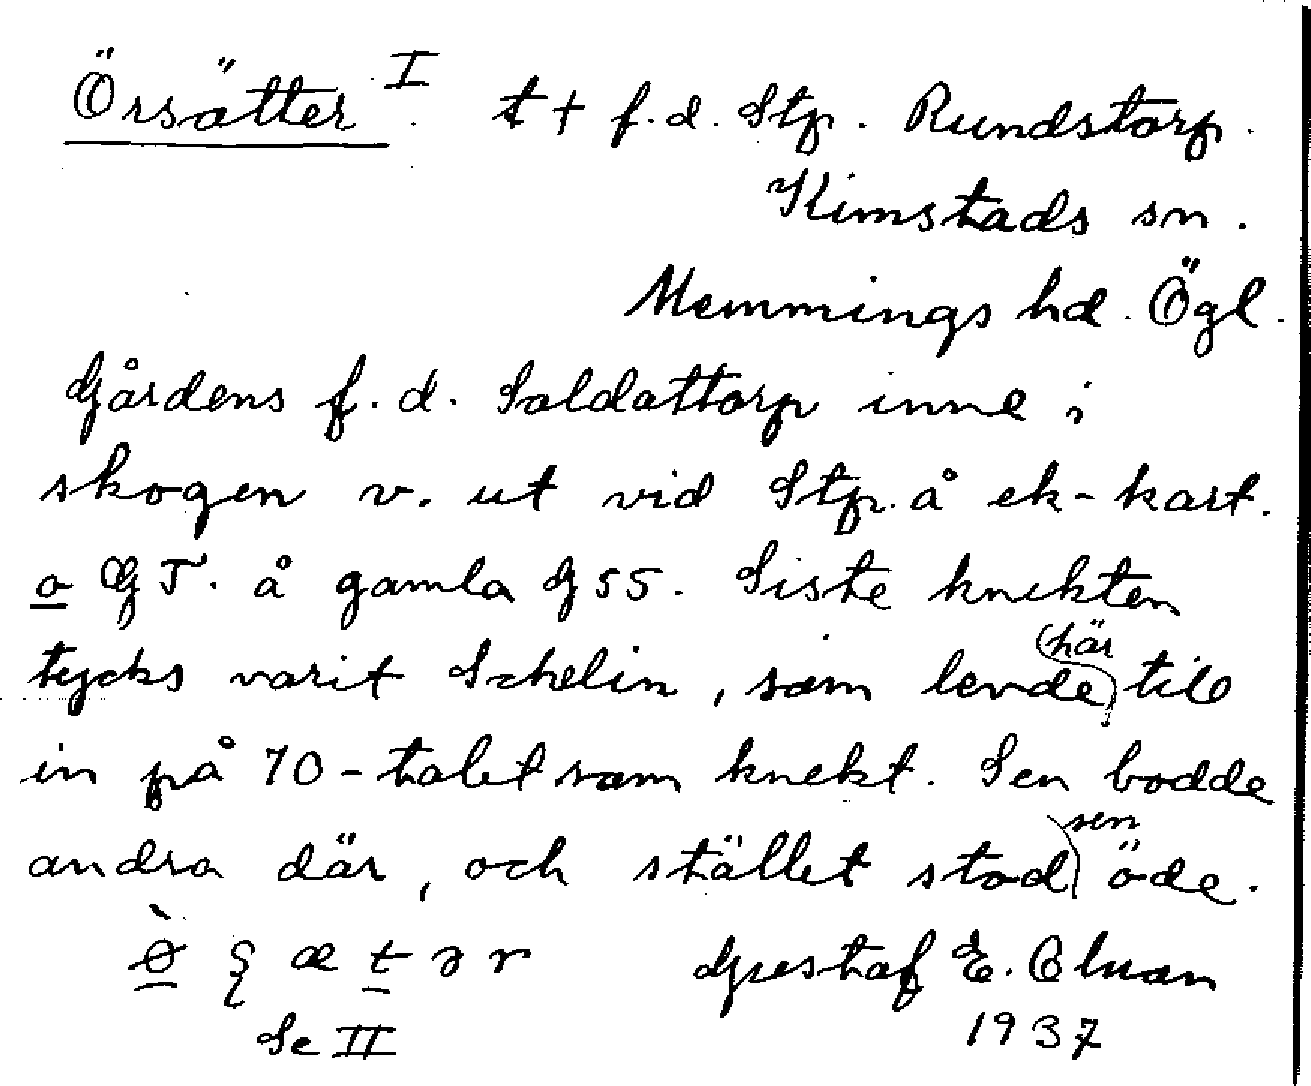 Örsätter I. t + f.d. Stp. Rundstorp.
Kimstads sn.
Memmings hd. Ögl.
Gårdens f.d. Soldattorp inne i
skogen v. ut vid Stp. å ek-kart.
o GT. å gamla G55. Siste knekten
tycks varit Schelin, som levde här till
in på 70-talet som knekt. Sen bodde
andra där, och stället stod sen öde.
Gustaf E.
1937
Se II